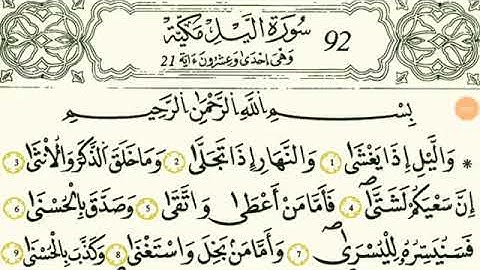 سُورَةُ الَّيْلِ مَكِّيَّة 92
وَهْىَ إِحْدَىٰ وَعِشْرُونَ ءَايَة 21
بِسْمِ اللَّهِ الرَّحْمَٰنِ الرَّحِيمِ
* وَالَّيْلِ إِذَا يَغْشَىٰ 1 وَالنَّهَارِ إِذَا تَجَلَّىٰ 2 وَمَا خَلَقَ الذَّكَرَ وَالْأُنثَىٰ 3
إِنَّ سَعْيَكُمْ لَشَتَّىٰ 4 فَأَمَّا مَنْ أَعْطَىٰ وَاتَّقَىٰ 5 وَصَدَّقَ بِالْحُسْنَىٰ 6
فَسَنُيَسِّرُهُ لِلْيُسْرَىٰ 7 وَأَمَّا مَنْ بَخِلَ وَاسْتَغْنَىٰ 8 وَكَذَّبَ بِالْحُسْنَىٰ 9